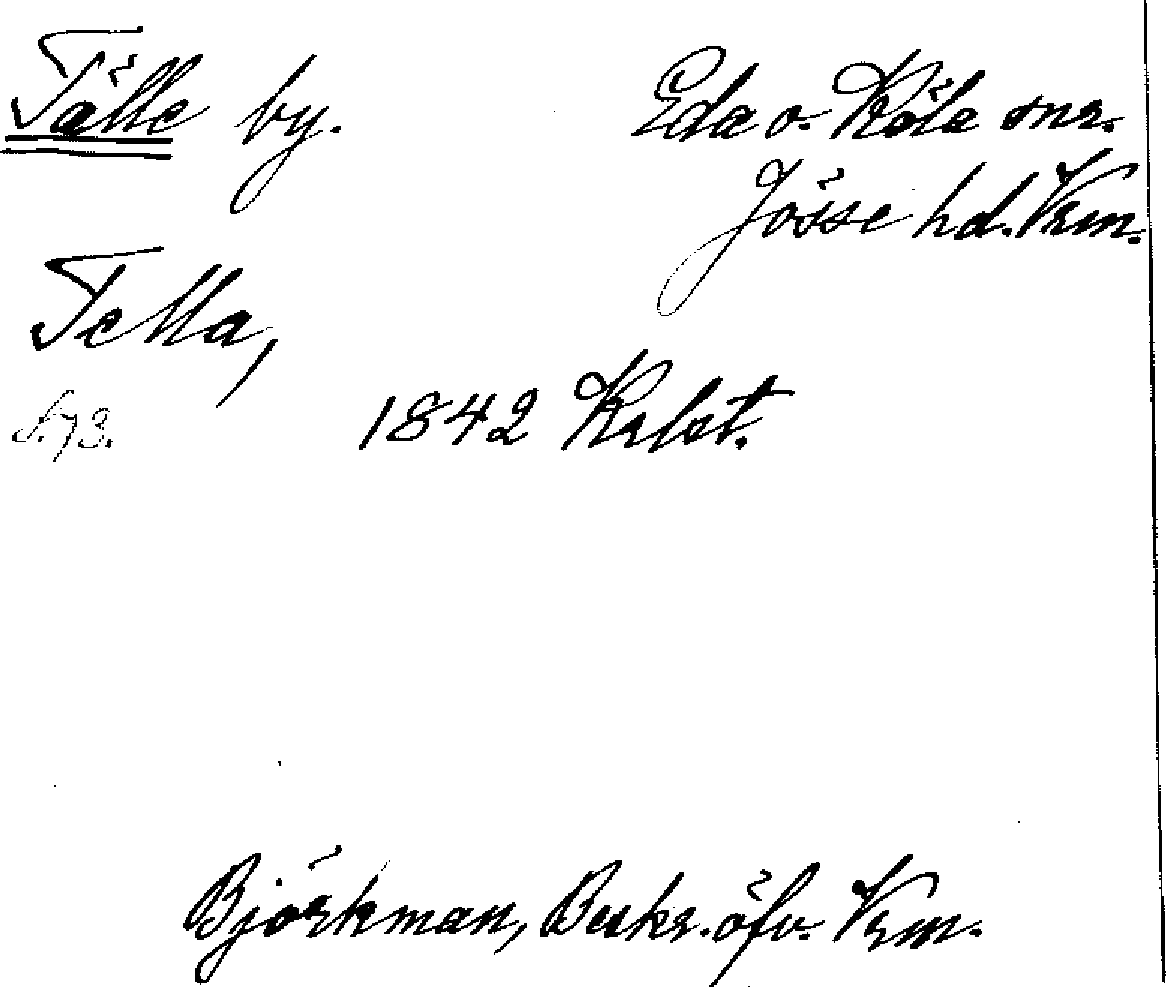 Tälle by.
Eda o. Köla snr.
Jösse hd. Vrm.
Tella,
s. 73.
1842 Krlst.
Björkman, Beskr. öfv. Vrm.